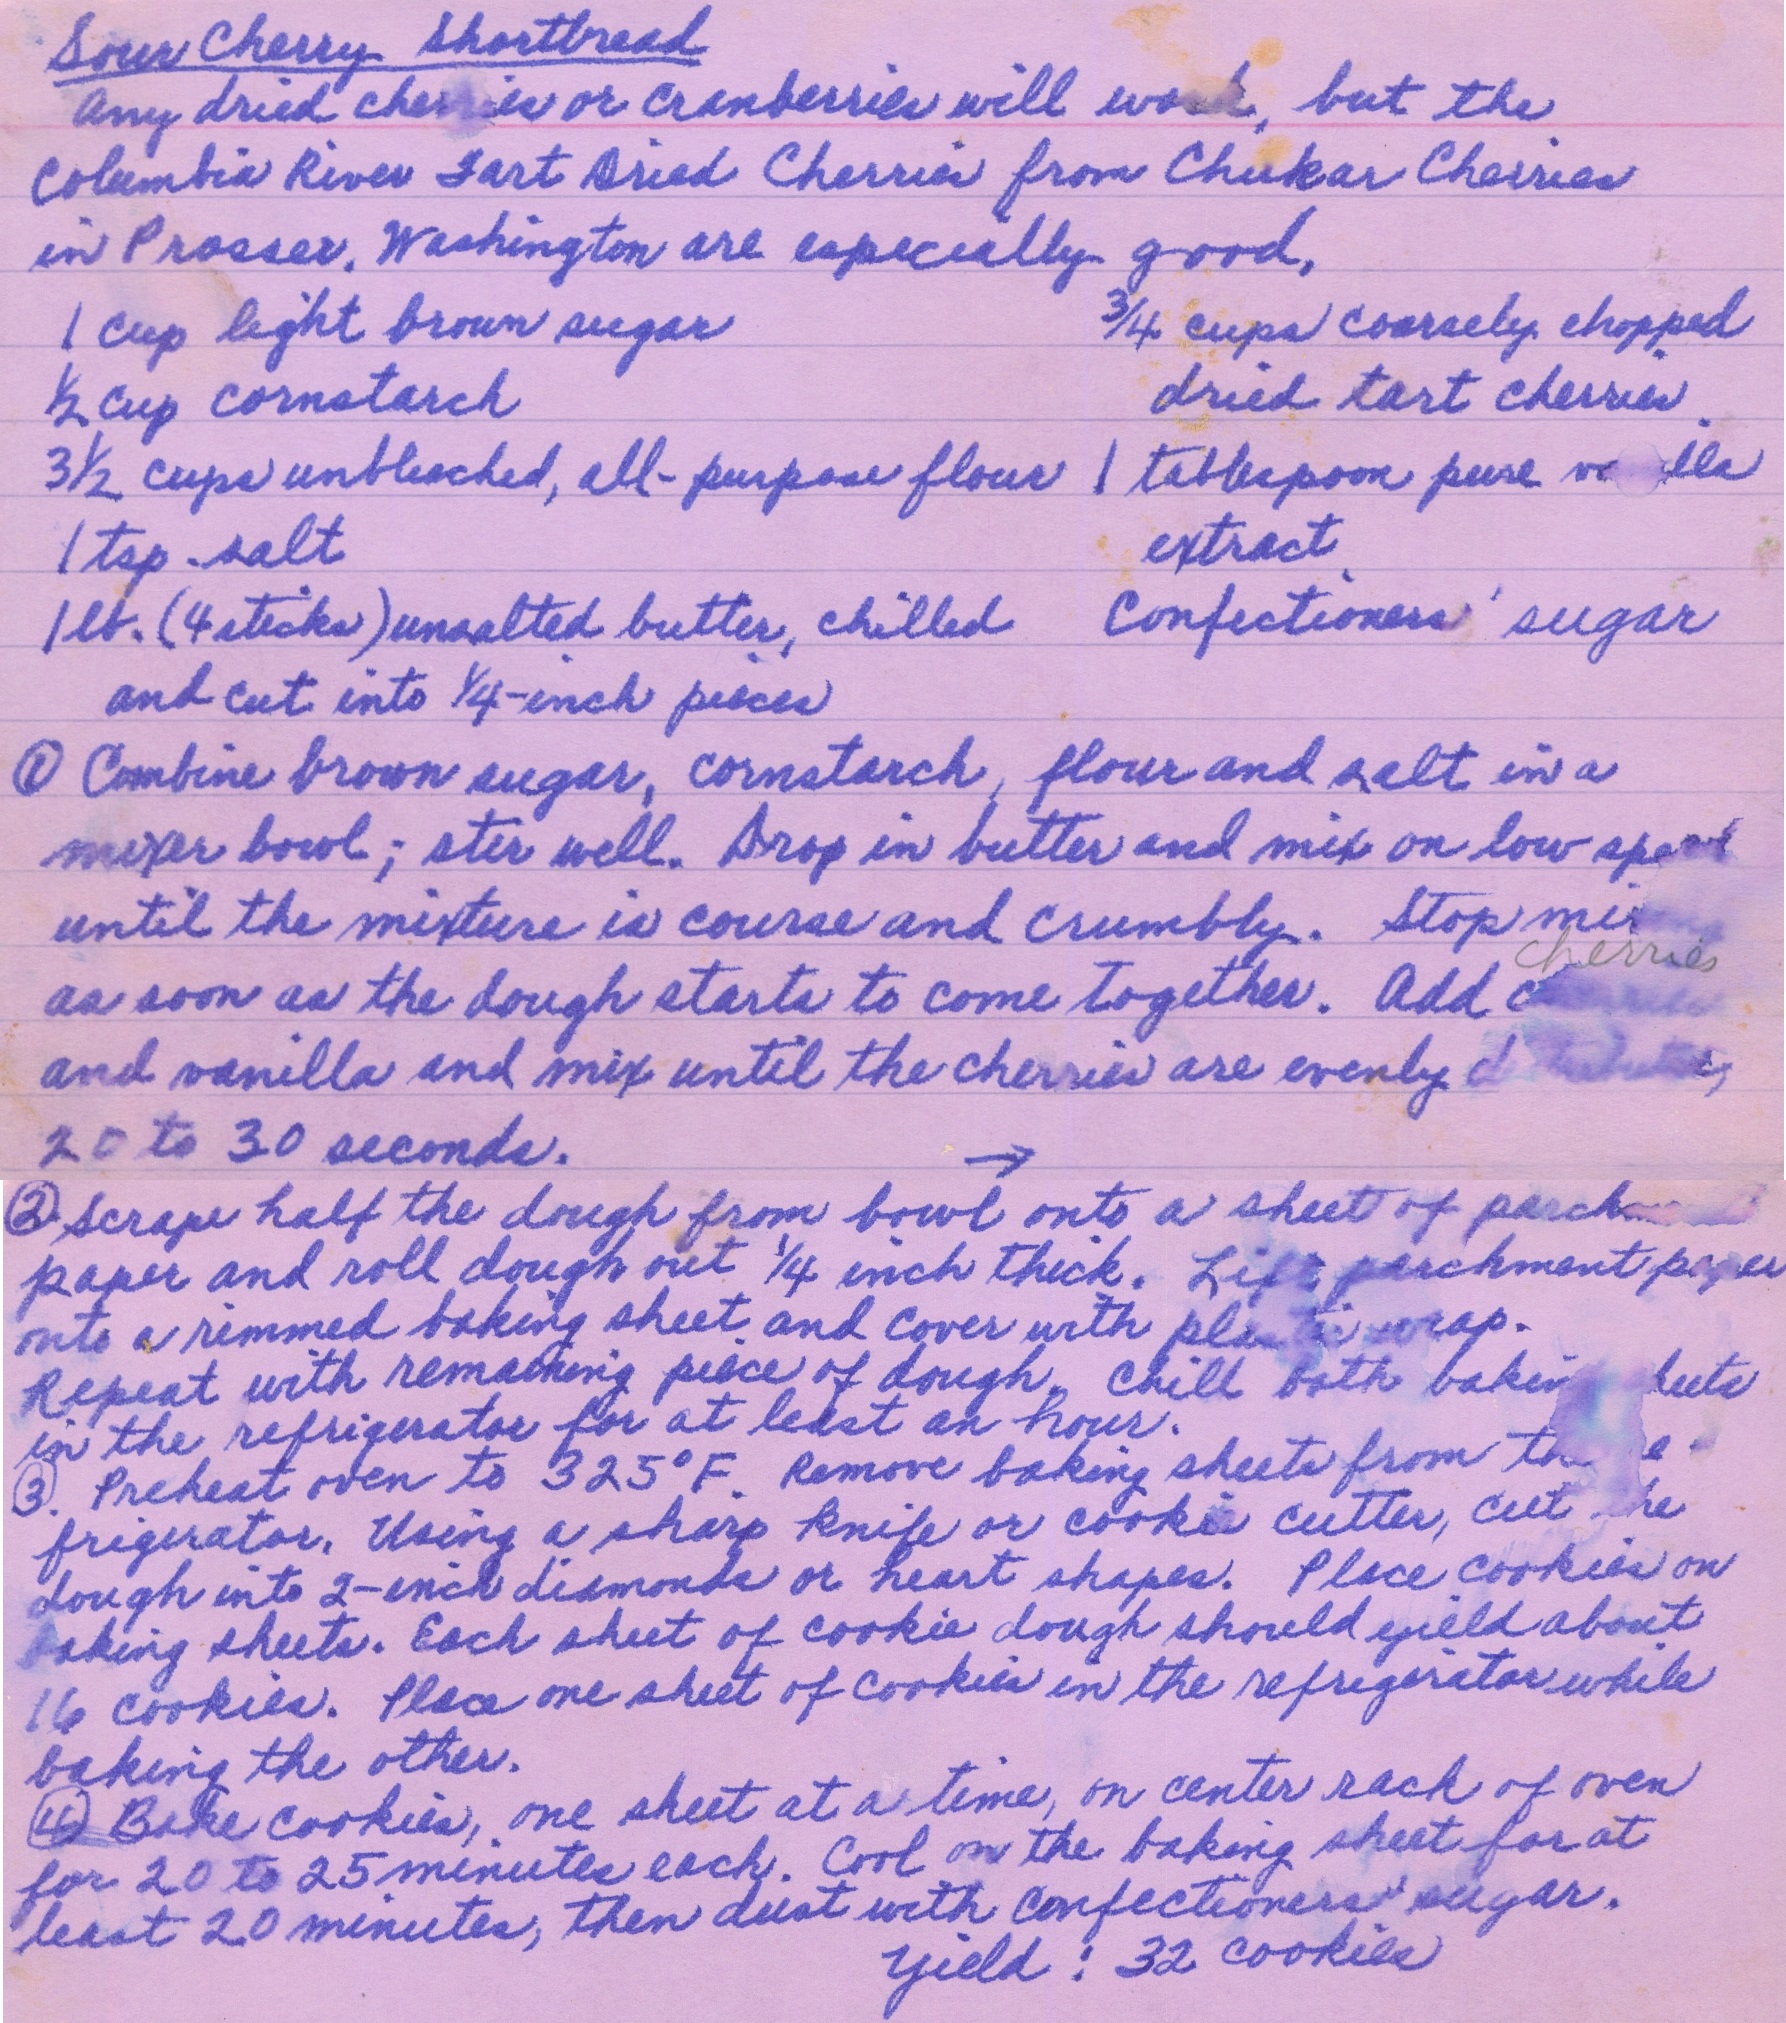 Sour Cherry Shortbread
Any dried cherries or cranberries will work, but the
Columbia River Tart Dried Cherries from Chukar Cherries
in Prosser, Washington are especially good.
1 cup light brown sugar
½ cup cornstarch
3½ cups unbleached, all-purpose flour
1 tsp. salt
1 lb. (4 sticks) unsalted butter, chilled
and cut into ¼-inch pieces
¾ cups coarsely chopped
dried tart cherries
1 tablespoon pure vanilla
extract
Confectioners' sugar
① Combine brown sugar, cornstarch, flour and salt in a
mixer bowl; stir well. Drop in butter and mix on low speed
until the mixture is course and crumbly. Stop mixing
cherries
as soon as the dough starts to come together. Add cherries
and vanilla and mix until the cherries are evenly distributed,
20 to 30 seconds. →
② Scrape half the dough from bowl onto a sheet of parchment
paper and roll dough out ¼ inch thick. Lift parchment paper
onto a rimmed baking sheet and cover with plastic wrap.
Repeat with remaining piece of dough. Chill both baking sheets
in the refrigerator for at least an hour.
③. Preheat oven to 325°F. Remove baking sheets from the re-
frigerator. Using a sharp knife or cookie cutter, cut the
dough into 2-inch diamonds or heart shapes. Place cookies on
baking sheets. Each sheet of cookie dough should yield about
16 cookies. Place one sheet of cookies in the refrigerator while
baking the other.
④ Bake cookies, one sheet at a time, on center rack of oven
for 20 to 25 minutes each. Cool on the baking sheet for at
least 20 minutes, then dust with confectioners' sugar.
Yield: 32 cookies